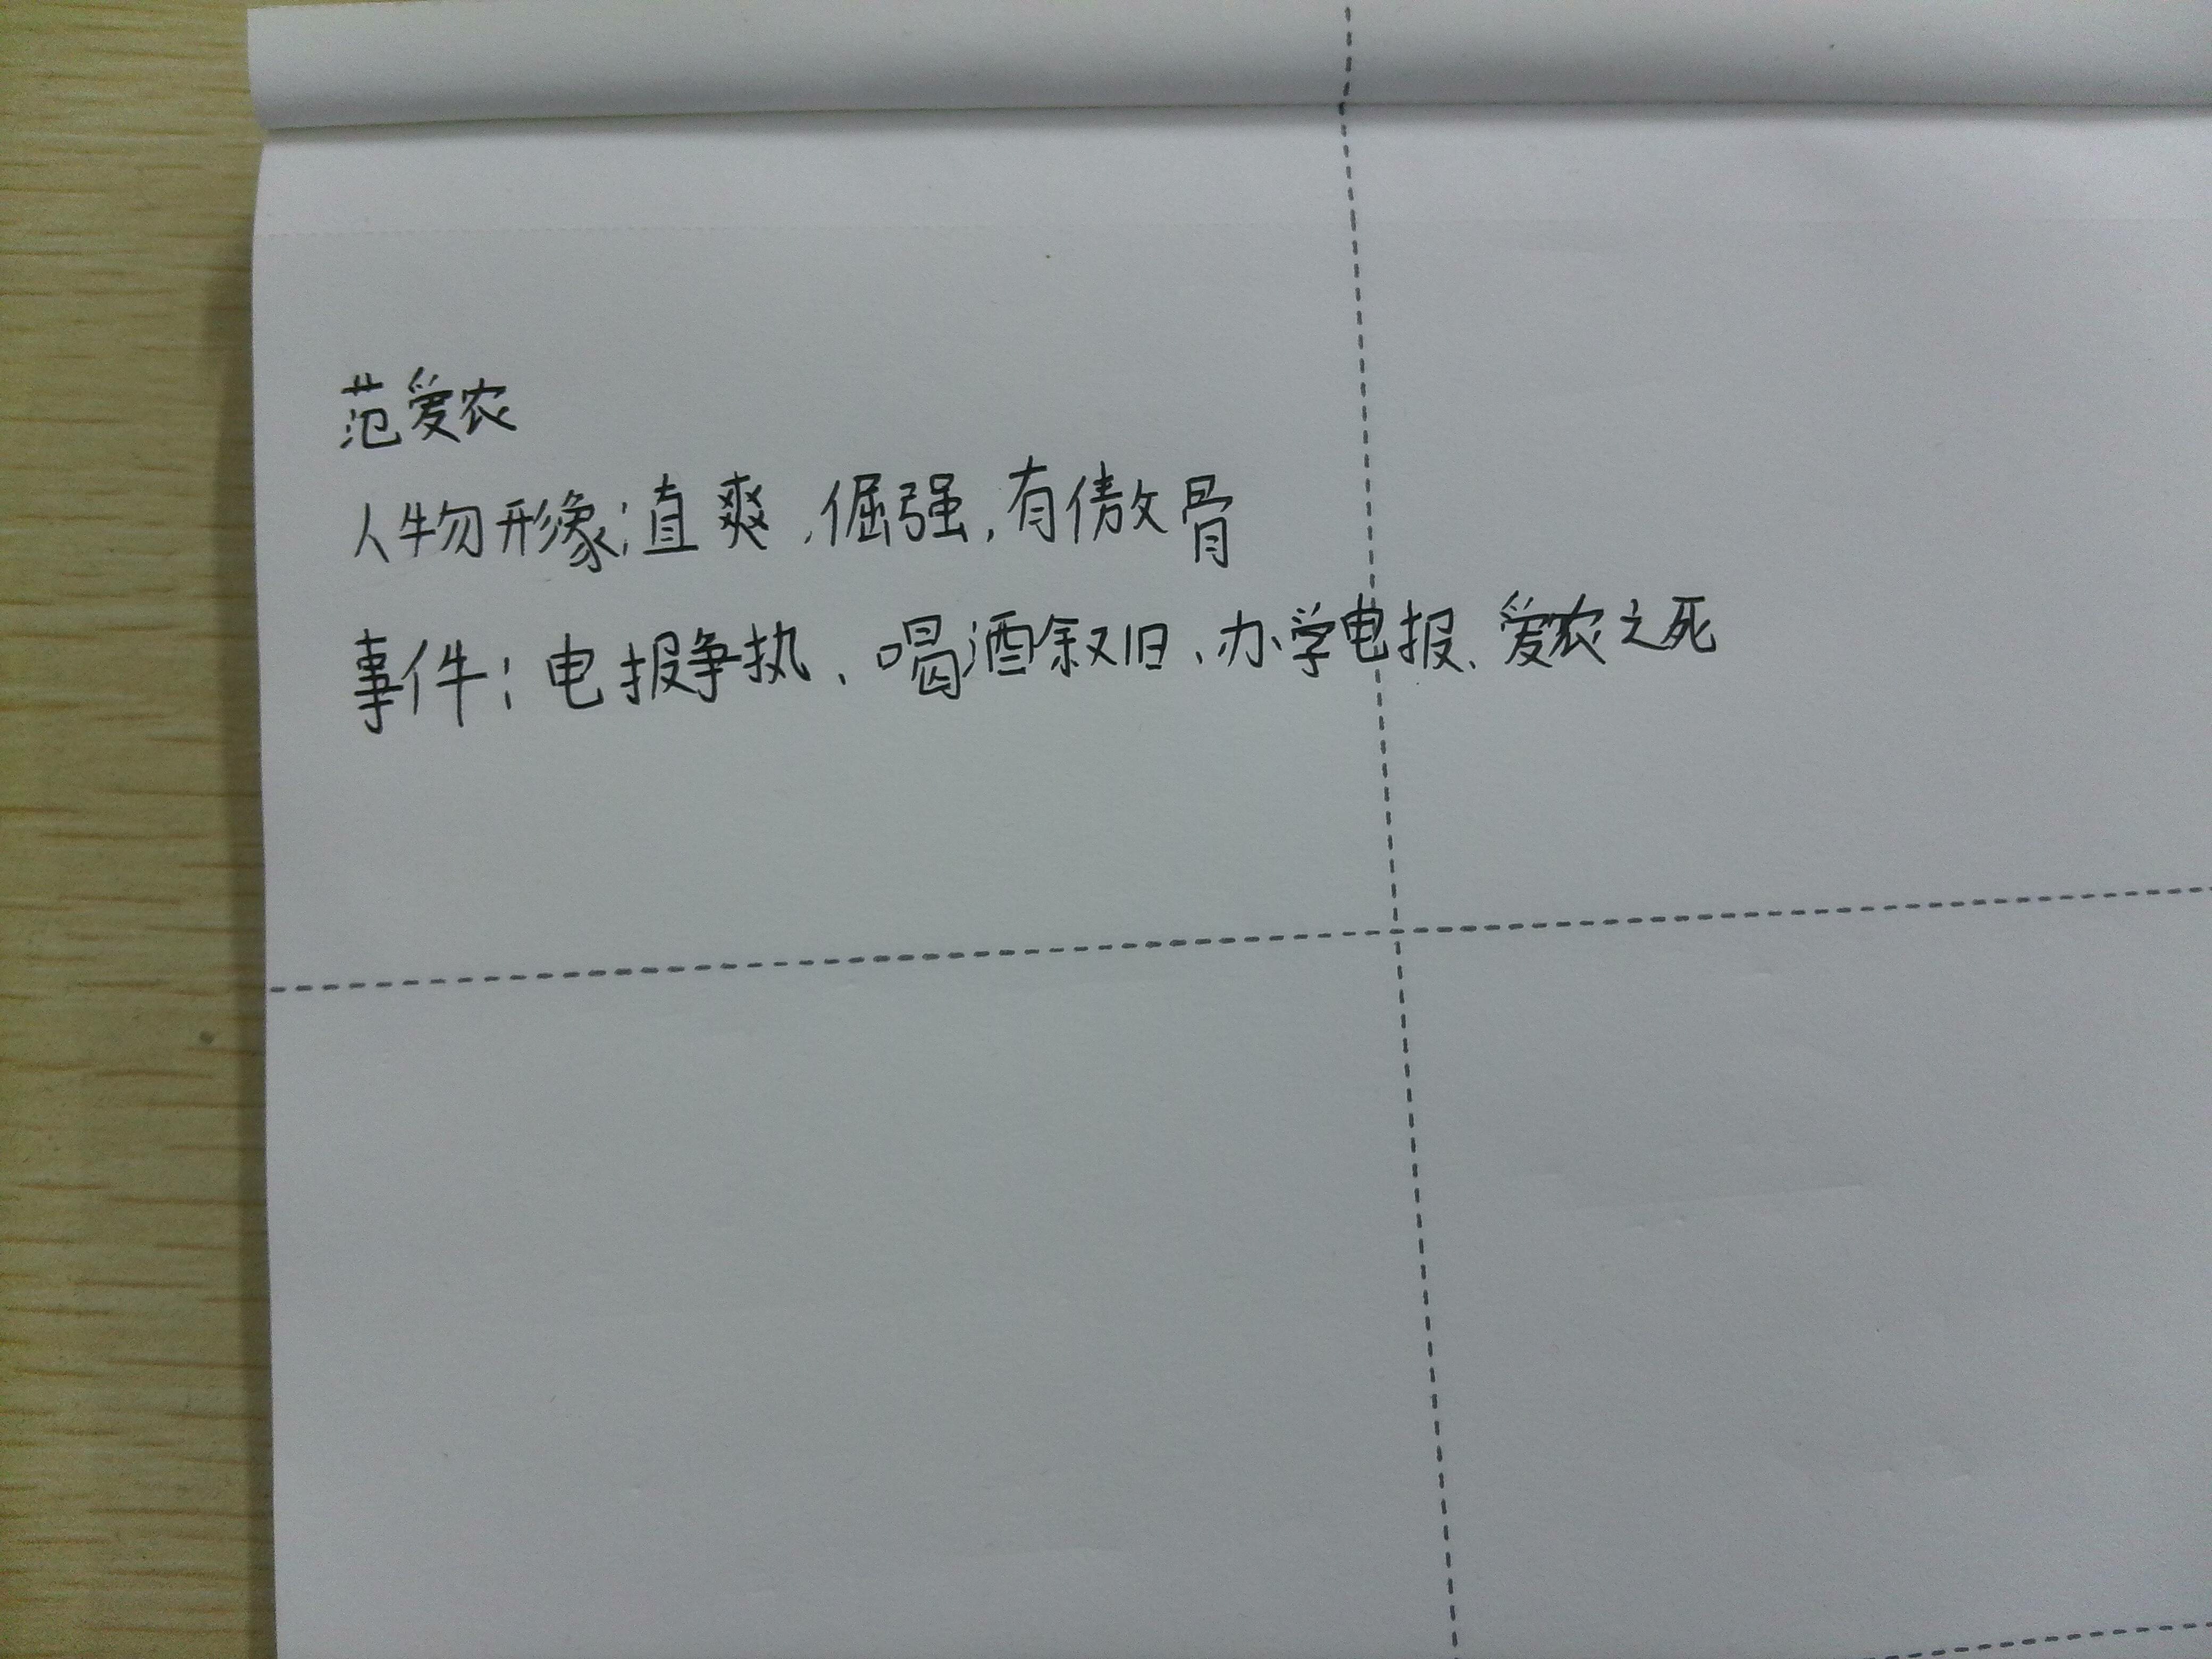 范爱农
人物形象:直爽,倔强,有傲骨
事件:电报争执、喝酒叙旧、办学电报、爱农之死